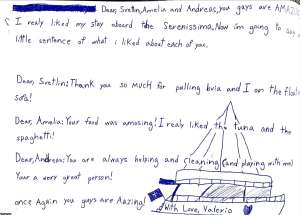 Dear, Svetlin, Amelia and Andreas, you gays are AMAZING
I realy liked my stay aboard the Serenissima. Now im going to say a
little sentence of what i liked about each of you.
Dear, Svetlin: Thank you so much for pulling bula and I on the floating
sofa!
Dear, Amelia: Your food was amusing! I realy liked, the tuna and the
spaghetti!
Dear, Andreas: You are always helping and cleaning (and playing with me)
Your a very great person!
once Again you guys are Amazing!
With Love, Valerio